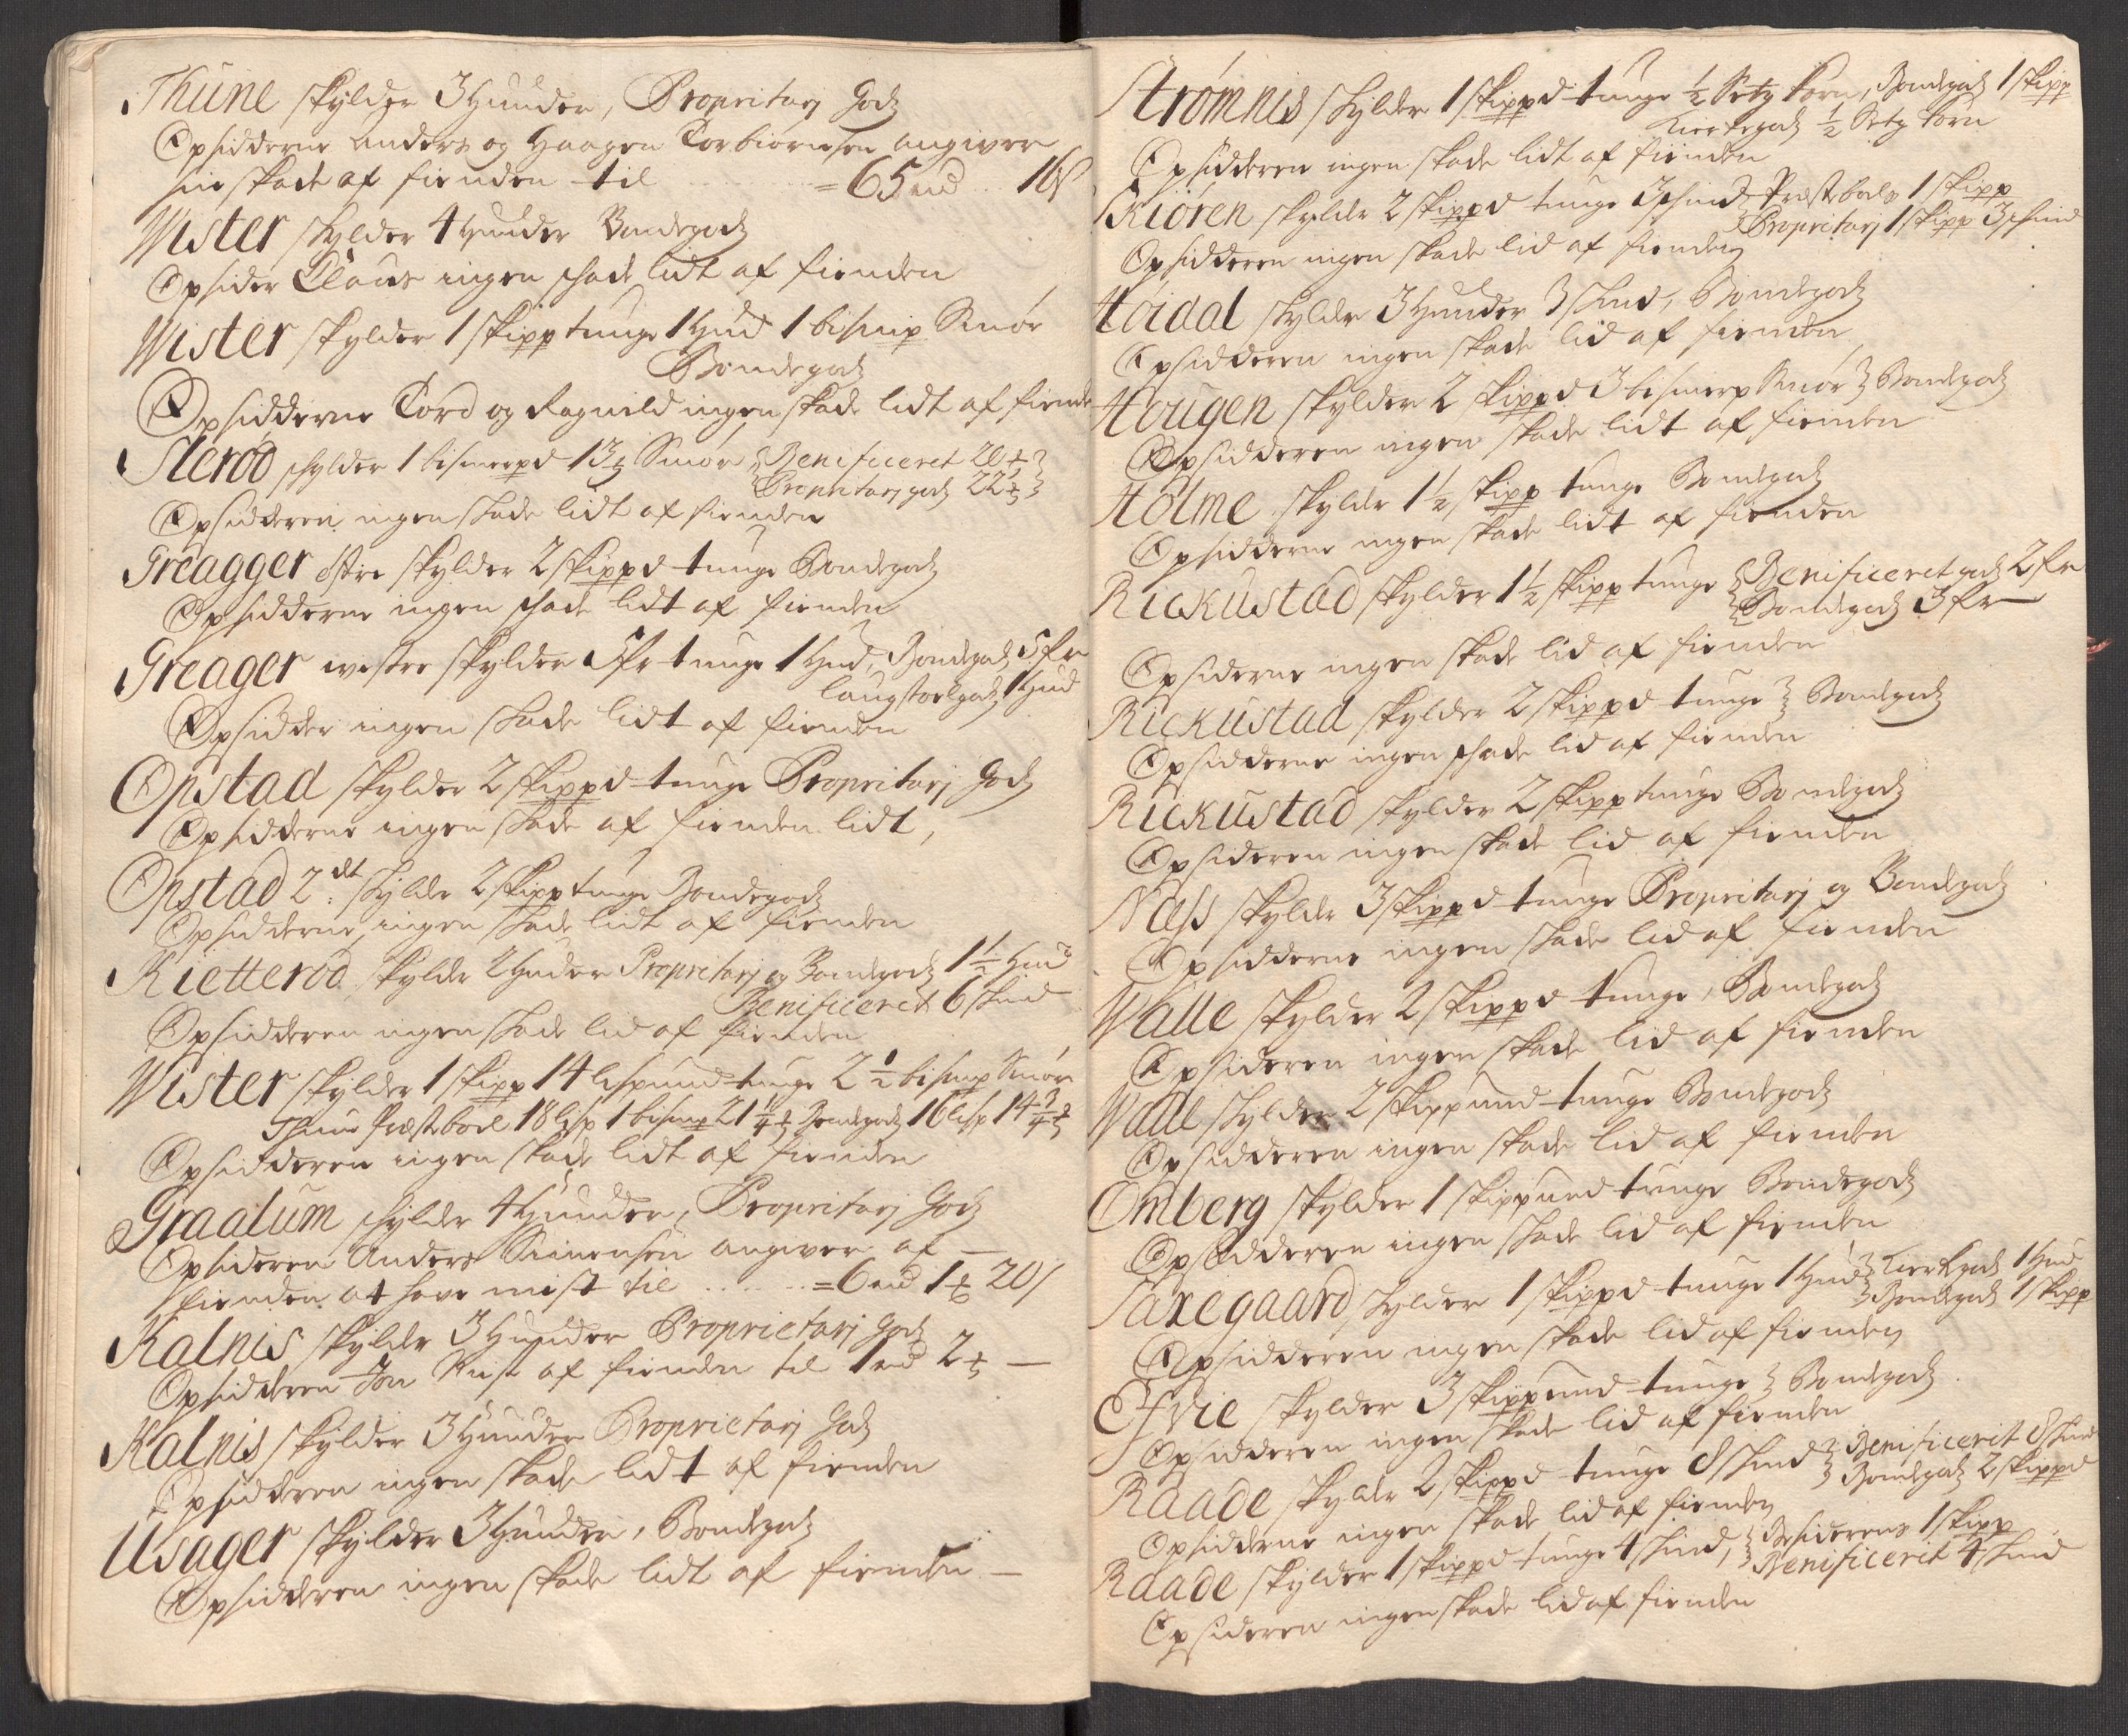 Thune skylder 3 Hunder, Propritarj Godz
Opsidderne Anders og Haagen Torbiørnsen angiver
sin skade af fienden til = 65 rd 16 s
Wister skylder 4 Hunder Bondegodz
Opsider Claus ingen skade lidt af fienden
Wister skylder 1 skipp tunge 1 Hud 1 bismp Smør
Bondegodz
Opsidderne Tord og Ragnild ingen skade lidt af fiende
Sterød skylder 1 bismerpd 13 Smør Benificeret 20
Propritarj godz 22
Opsidderen ingen skade lidt af fienden
Greagger østre skylder 2 skippd tunge Bondegodz
Opsidderne ingen skade lidt af fienden
Greager westre skylder 5 fr tunge 1 Hud, Bondegodz 5 fr
laugstoelgodz 1 Hud
Opsidder ingen skade lidt af fienden
Opstad skylder 2 skippd tunge Propritarj Godz
Opsidderne ingen skade af fienden lidt,
Opstad 2dt: skylder 2 skipp tunge Bondegodz
Opsidderne ingen skade lidt af fienden
Kietterød skylder 2 Huder Propritarj og Bondegodz 1½ Hud
Benificeret 6 skind
Opsidderen ingen skade lid af fienden
Wister skylder 1 skipp 14 lispund tunge 2½ bismp Smør
Thune Præsteboel 18 lisp 1 bismp 21¼ Bondegodz 16 lisp 14¾
Opsidderen ingen skade lidt af fienden
Graalum skylder 4 Hunder, Propritarj Godz
Opsideren Anders Simensen angiver af
fienden at have mist til = 6 rd 1 20 s
Kalnis skylder 3 Hunder Proprietarj Godz
Opsidderen Jon Mist af fienden til 1 rd 2 —
Kalnis skylder 3 Hunder Proprietarj Godz
Opsidderen ingen skade lidt af fienden
Usager skylder 3 Hunder, Bondegodz
Opsidderen ingen skade lidt af fienden —
Strømnis skylder 1 skippd tunge ½ Setz korn, Bondegodz 1 skipp
Kierkegodz ½ Setz korn
Opsidderen ingen skade lidt af fienden
Kiøren skylder 2 skippd tunge 3 skind Præstebols 1 skipp
Propritarj 1 skipp 3 skind
Opsidderen ingen skade lid af fienden
Høidal skylder 3 Hunder 3 skind, Bondegodz
Opsidderen ingen skade lid af fienden
Hougen skylder 2 skippd 3 bismerp Smør Bondegodz
Opsidderen ingen skade lidt af fienden
Holme skylder 1½ skipp tunge Bondegodz
Opsidderne ingen skade lidt af fienden
Rickustad skylder 1½ skipp tunge Benificeret godz 2 fr
Bondegodz 3 fr
Opsiderne ingen skade lid af fienden
Rickustad skylder 2 skippd tunge Bondegodz
Opsidderne ingen skade lid af fienden
Rickustad skylder 2 skipp tunge Bondegodz
Opsideren ingen skade lid af fienden
Næss skylder 3 skippd tunge Propritarj og Bondegodz
Opsidderne ingen skade lid af fienden
Walle skylder 2 skippd tunge, Bondegodz
Opsideren ingen skade lid af fienden
Walle skylder 2 skippund tunge Bondegodz
Opsidderen ingen skade lid af fienden
Omberg skylder 1 skippund tunge Bondegodz
Opsidderen ingen skade lid af fienden
Saxegaard skylder 1 skippd tunge 1 Hud Kierkgodz 1 Hud
Bondegodz 1 skipp
Opsidderen ingen skade lid af fienden
Efvie skylder 3 skippund tunge Bondegodz
Opsidderen ingen skade lid af fienden
Raade skylder 2 skippd tunge 8 skind Benificerit 8 skind
Bondegodz 2 skippd
Opsidderne ingen skade lid af fienden
Raade skylder 1 skippd tunge 4 skind, Opsiderens 1 skipp
Benificerit 4 skind
Opsideren ingen skade lid af fienden